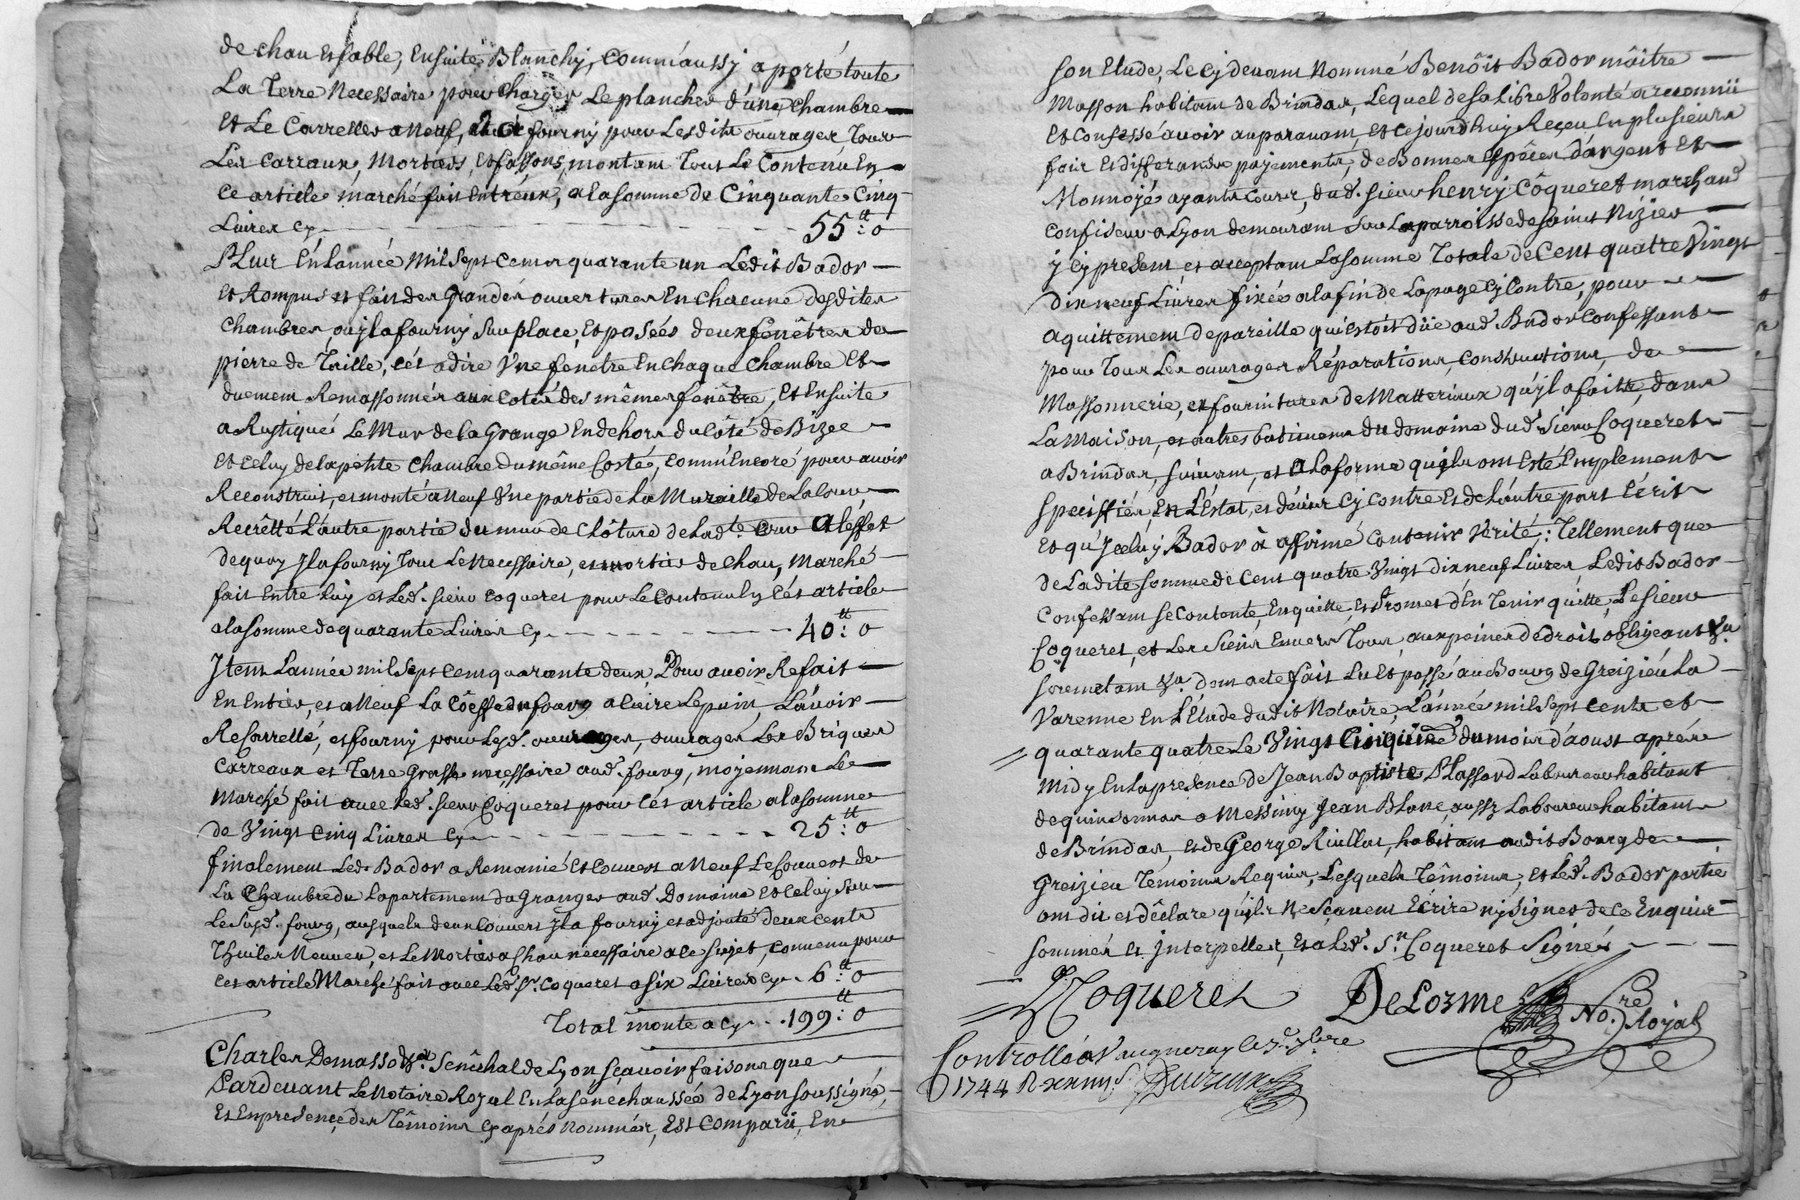 de chau et sable, Ensuite Blanchy, comm'aussy a porté toute
La Terre Necessaire pour charger Le plancher d'une chambre
Et Le Carreller a neuf, fourny pour Lesdits ouvrages Tous
Les carraux, Mortiers, et fassons, montant Tout Le Contenu En
ce article marché fait Entr'eux, a la somme de Cinquante Cinq
Livres cy 55 ₶: 0
Plus En L'année Mil Sept Cents quarante un Ledit Bador
Et Rompus et fait des Grandes ouvertures En chacune desdites
Chambres, ou jl a fourny sur place, Et posées deux fenêtres de
pierre de Taille, c'ést a dire Vne fenetre En chaque Chambre Et
duement Remassonnés aux cotés des mêmes fenêtre, Et Ensuite
a Rustiqué Le Mur de la Grange En dehors du côté de Bize
Et celuy de la petite Chambre du même Costé, comm'Encoré pour avoir
Reconstruit, et monté a Neuf Vne partie de La Muraille de La Cour
Recrêtté L'autre partie du mur de Clôture de Lad.te Cour a L'effet
de quoy Jl a fourny Tout Le Necessaire, et mortier de Chau, Marché
fait Entre Luy et Led. sieur Coqueret pour Le Contenu En cés article
a la somme de quarante Livres cy 40 ₶: 0
Jtem L'année mil Sept Cent quarante deux, Pour avoir Refait
En Entier, et a Neuf La Coësse du fourg a Cuire Le pain, L'avoir
ReCarrellé, et fourny pour Lesd. ouvrages, ouvrages Les Briques
Carreaux et Terre Grasse necessaire aud. fourg, moyennant Le
Marché fait avec Led. sieur Coqueret pour cés article a la somme
de Vingt Cinq Livres cy 25 ₶: 0
finalement Led. Bador a Remanié Et Couvert a Neuf Le Couvert de
La Chambre de Lapartement du Granger aud. Domaine et celuy Sur
Le susd. fourg, ausquels deux Couvert jl a fourny et adjouté deux cents
Thuiles Neuves, et Le Mortier a Chau necessaire a ce sujet, Convenu pour
ces article Marché fait avec Led. Sr. Coqueret a six Livres cy 6 ₶: 0
Total monte a cy 199 ₶: 0
Charles Demasso Senêchal de Lyon sçavoir faisons que
Pardevant Le Notaire Royal En La sénéchaussée de Lyon soussigné,
Et En presence des Têmoins cy aprés Nommés, Est Comparû, En
son Etude, Le Cy devant Nommé Benôit Bador maître
Masson habitant de Brindas, Lequel de sa Libre Volonté a reconnü
Et Confessé avoir auparavant, Et Cejourd'huy Reçeu En plusieurs
fois Et differands payements, de Bonnes Espêces d'argent Et
Monnoyé ayants Cours, dud. sieur henry Côqueret marchand
Confiseur a Lyon demeurant Sur La parroisse de saint Nizier
y Cy present et acceptant La somme Totale de Cent quatre Vingt
dix neuf Livres fixée a la fin de La page Cy Contre, pour
aquittement de pareille qui Estoit düe aud. Bador Confessant
pour Tous Les ouvrages Réparations, Constructions, de
Massonnerie, et fournitures de Matteriaux qu'jl a faitte, dans
La Maison, et autres batimens du domaine dud. Sieur Coqueret
a Brindas, suivant, et a la forme qu'jls ont Esté Emplement
specifiés, En L'éstat, et dévis Cy Contre Et de L'autre part Ecrit
Et qu'Jceluy Bador à affirmé Contenir Vérité: Tellement que
de Ladite somme de Cent quatre Vingt dix neuf Livres Ledit Bador
Confessant se Contente, En quitte Et Promet d'En Tenir quitte Le sieur
Coqueret, et Les Siens Envers Tous, aux peines de droit, obligeant &a
soumettant &a. dont acte fait Lu Et passé au Bourg de Greizieu La
Varenne En L'Etude dudit Notaire, L'année mil Sept Cents et
quarante quatre Le Vingt Cinquiéme du mois d'aoust aprés
Midy En La presence de Jean Baptiste Plassard Laboureur habitant
de quinsonnas a Messimy Jean Blanc, aussy Laboureur habitant
de Brindas, et de George Riullat, habitant audit Bourg de
Greizieu Temoins Requis, Lesquels Têmoins, et Led. Bador partie
ont dit et dêclare qu'jls Ne sçavent Ecrire ny signer de ce Enquis
sommés et Jnterpellés, Et a Led. Sr. Coqueret Signé
H Coqueret DeLorme No.re Royal
Controllé a Vaugneray le 7.bre
1744